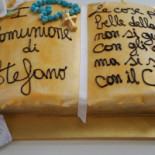 I
Comunione
di
Stefano
Le cose
belle della
non si gu
Con gli o
ma si s
con il C